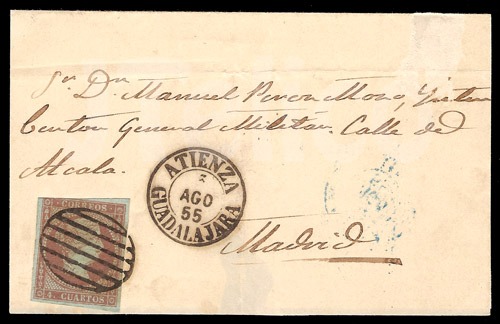 Sr. Dn. Manuel Peron Mono, Inter
ventor General Militar. Calle de
Alcala.
Madrid
ATIENZA
AGO
55
GUADALAJARA
CORREOS
4 CUARTOS